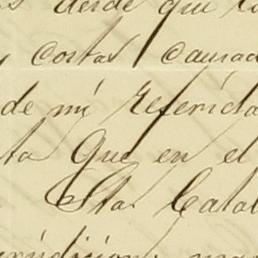 desde que
costas causad
de mi referida
ta que en el
Sta. Catal